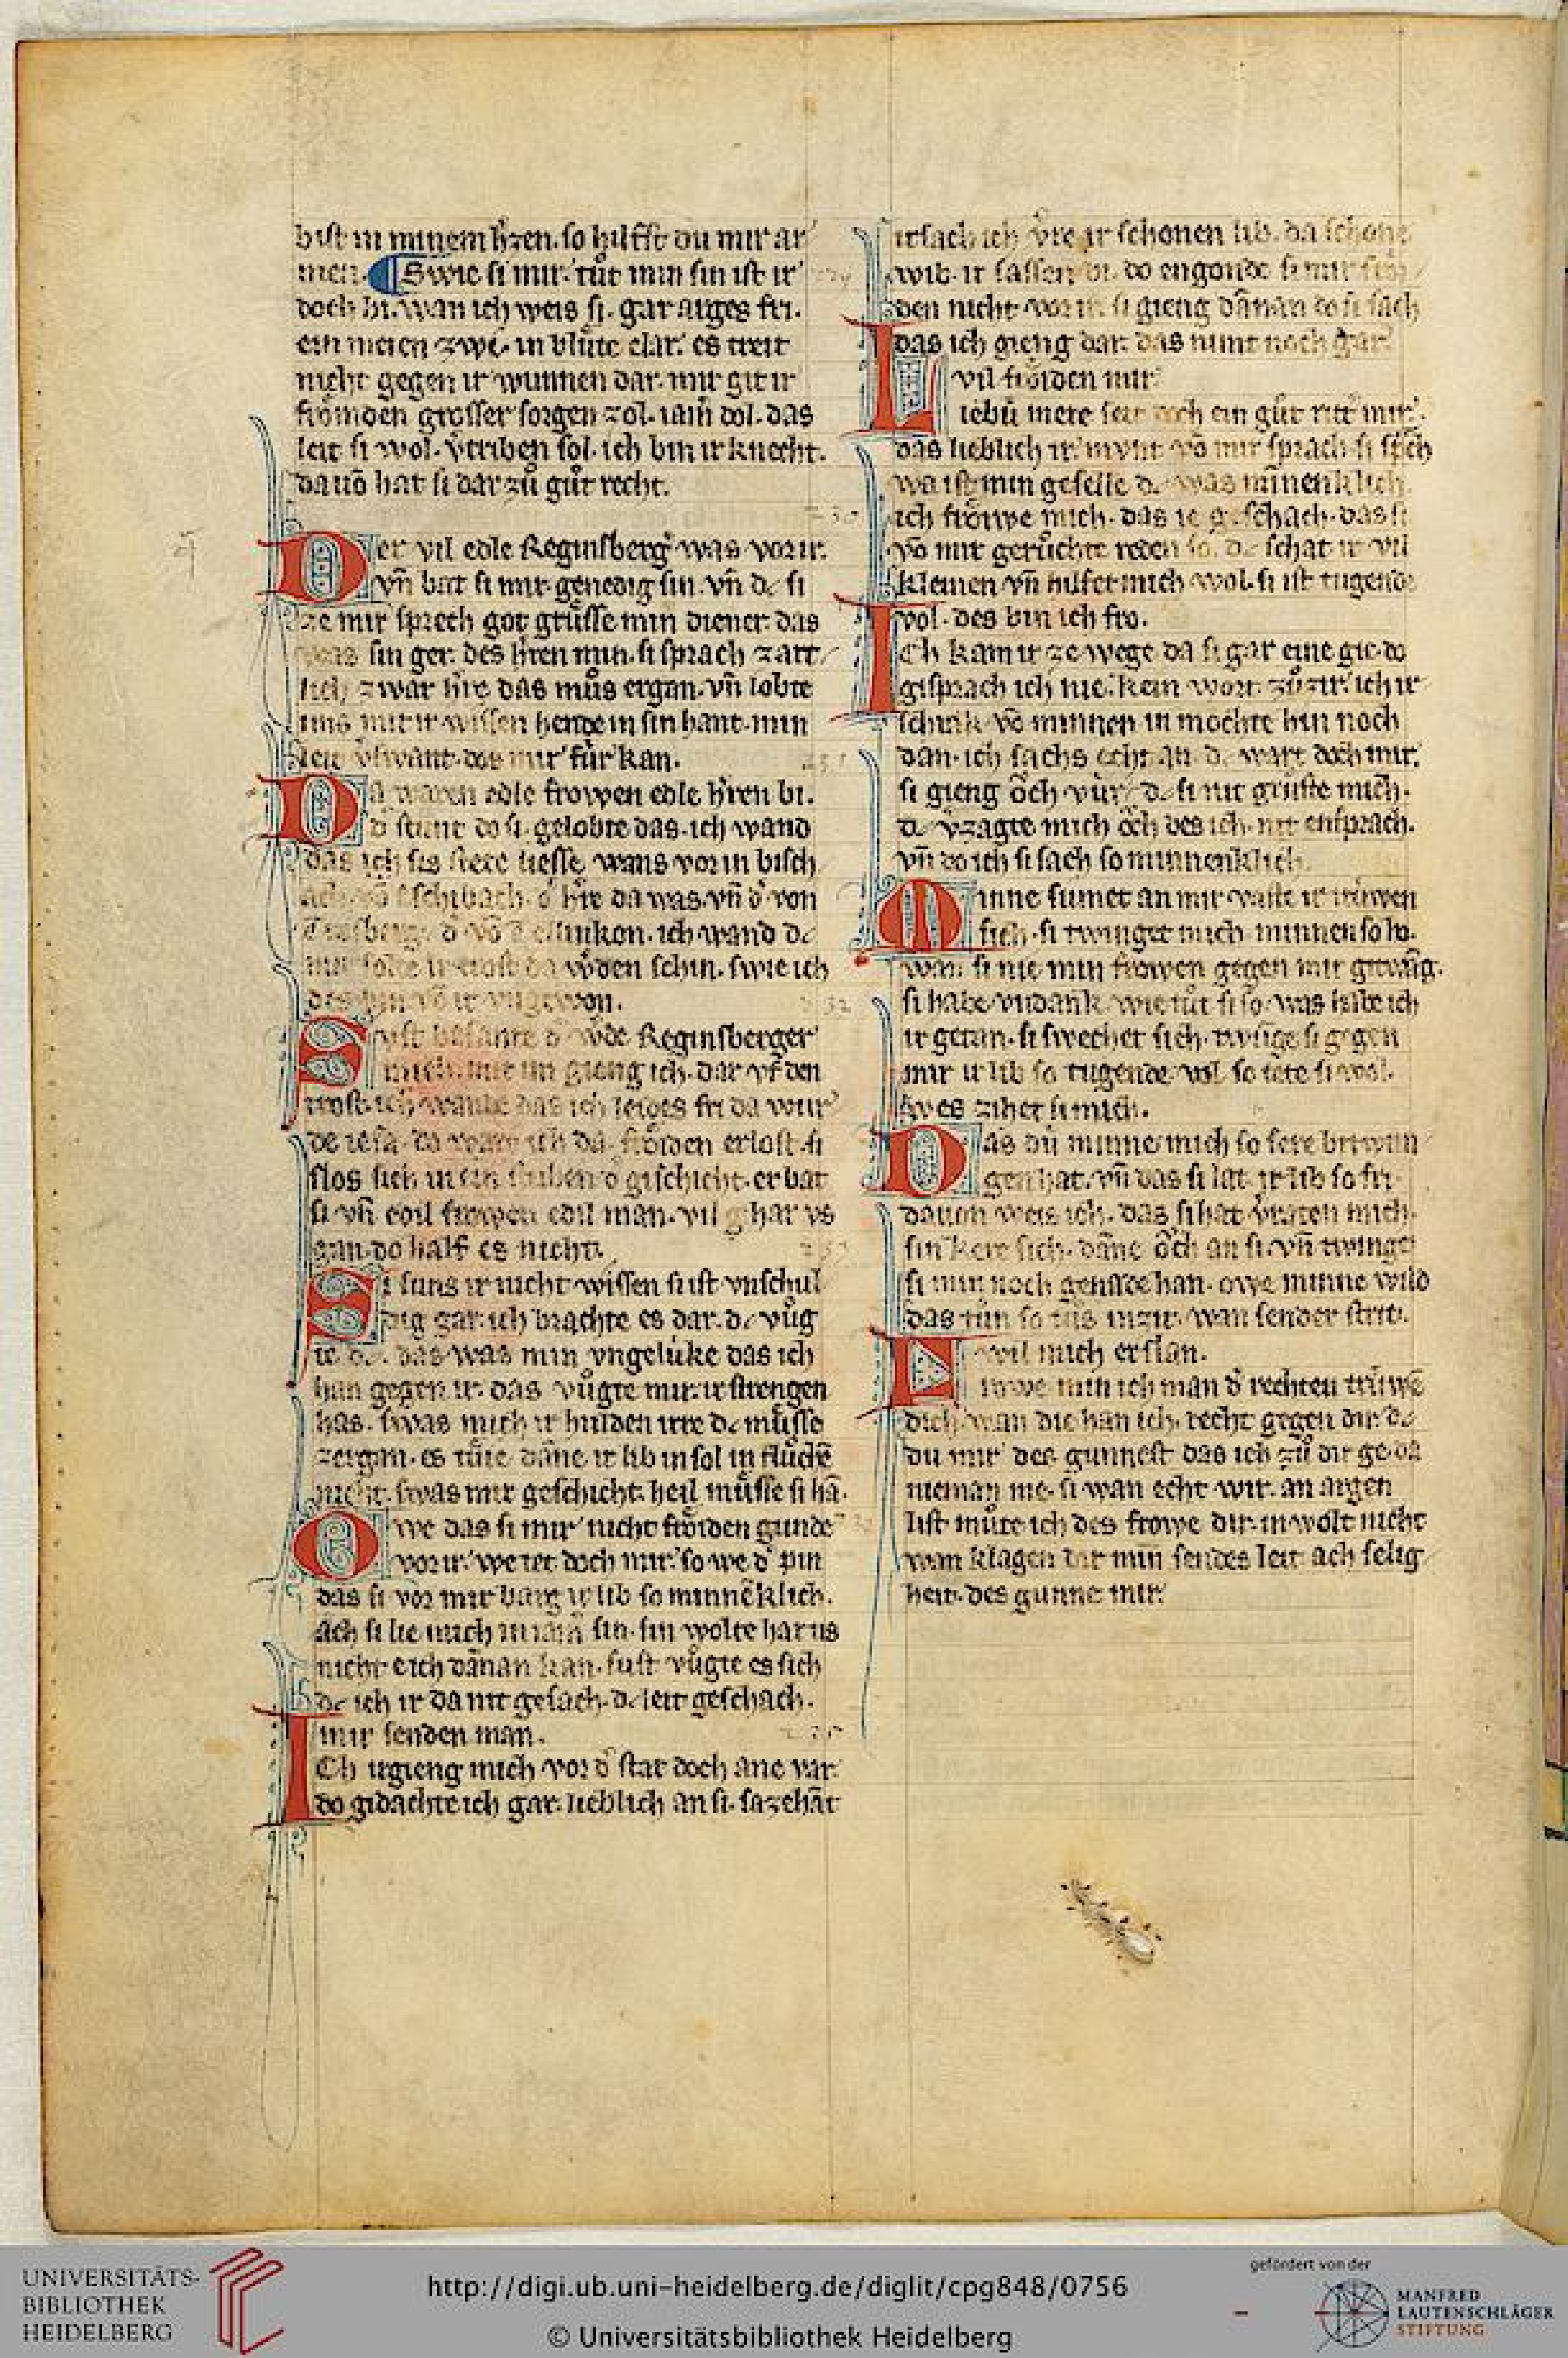 bist in minem h̅zen. so hilfst du mir ar
men. Swie si mir. tůt min sin ist ir
doch bi. wan ich weis si. gar arges fri.
ein meien zwi. in blůte clar. es treit
nicht gegen ir wunnen dar. mir git ir
frömden grosser sorgen zol. iam̅ dol. das
leit si wol. v̾triben sol. ich bin ir knecht.
dauō hat si dar zů gůt recht.
Der vil edle Reginsberg̾ was vor ir.
vn̅ bat si mir genedig sin. vn̅ dc si
ze mir sprech got grüsse min diener. das
was sin ger. des h̾ren min. si sprach zart
lich zwar h̾re das můs ergan. vn̅ lobte
ims mit ir wissen hende in sin hant. min
leit v̾swant. das mir für kan.
Da waren edle frowen edle h̾ren bi.
d̾ stunt do si. gelobte das. ich wand
das ich sis stete liesse wans vor in bisch
vō Eschibach. d̾ h̾re da was. vn̅ d̾ von
d̾ vō Tellinkon. ich wand dc
mir solte ir trost da w̾den schin. swie ich
des bin vō ir vngewon.
Sust besante d̾ w̾de Reginsberger
mich. mit im gieng ich. dar vf den
trost. ich wande das ich leides fri da wur
de iesa. do wart ich da. fröiden erlost. si
slos sich in ein stuben d̾ gischicht. er bat
si vn̅ edil frowen edil man. vil g har vs
gan. do half es nicht.
Si suns ir nicht wissen si ist vnschul
dig gar. ich brachte es dar. dc vůg
te dc. das was min vngelüke das ich
han gegen ir. das vůgte mir ir strengen
has. swas mich ir hulden irre dc müsse
zergan. es tůte dāne. ir lib in sol in flůchē
nicht. swas mir geschicht. heil müsse si hā.
Owe das si mir nicht fröiden gunde
vor ir. we tet doch mir. so we d̾ pin
das si vor mir barg ir lib so minnēklich.
ach si lie mich in iām̅ sin. sin wolte har us
nicht e ich dānan kan. sust vůgte es sich
dc ich ir da nit gesach. dc leit geschach.
mir senden man.
Ich irgieng mich vor d̾ stat doch ane var.
do gidachte ich gar. lieblich an si. sa zehāt
irsach ich v̾re ir schonen lib. da schone
wib. ir sassen bi. do engonde si mir
den nicht vor ir. si gieng dānan do si sach
das ich gieng dar. das nimt noch gar
vil fröiden mir.
Liebü mere seit doch ein gůt ritt̾ mir.
das lieblich ir munt vō mir sprach. si sp̅ch
wa ist min geselle dc was minenklich
ich fröwe mich. das ie geschach. das si
vō mir gerůchte reden so. dc schat ir vil
kleinen vn̅ hilfet mich wol. si ist tugende
vol. des bin ich fro.
Ich kam ir ze wege da si gar eine gie. do
gisprach ich nie. kein wort zů zir. ich ir
schrik vō minnen in mochte hin noch
dan. ich sachs echt an. dc wart doch mir.
si gieng öch vür. dc si nit grüste mich.
dc v̾zagte mich öch des ich nit ensprach.
vn̅ do ich si sach so minnenklich.
Minne sumet an mir vaste ir trüwen
sich. si twinget mich minnen so ho.
wan si nie min frowen gegen mir gitwāg.
si habe vndank. wie tůt si so. was habe ich
ir getan. si swechet sich. twūge si gegen
mir ir lib so tugende vol so tete si wol.
wes zihet si mich.
Das dü minne mich so sere bitwun
gen hat. vn̅ das si lat ir lib so fri.
dauon weis ich. das si hat v̾raten mich.
sin kere sich. dāne öch an si vn̅ twinge
si min noch genade han. owe minne wild
das tůn so tůs in zit. wan sender strit.
wil mich erslan.
min ich man d̾ rechten trüwē
dich wan die han ich. recht gegen dir. dc
du mir des gunnest das ich zů dir ge da
nieman me. si wan echt wir. an argen
list můte ich des frowe dir. in wolt nicht
wan klagen dir min sendes leit. ach selig
heit. des gunne mir.
UNIVERSITÄTS-
BIBLIOTHEK
HEIDELBERG
http://digi.ub.uni-heidelberg.de/diglit/cpg848/0756
© Universitätsbibliothek Heidelberg
gefördert von der
MANFRED
LAUTENSCHLÄGER
STIFTUNG